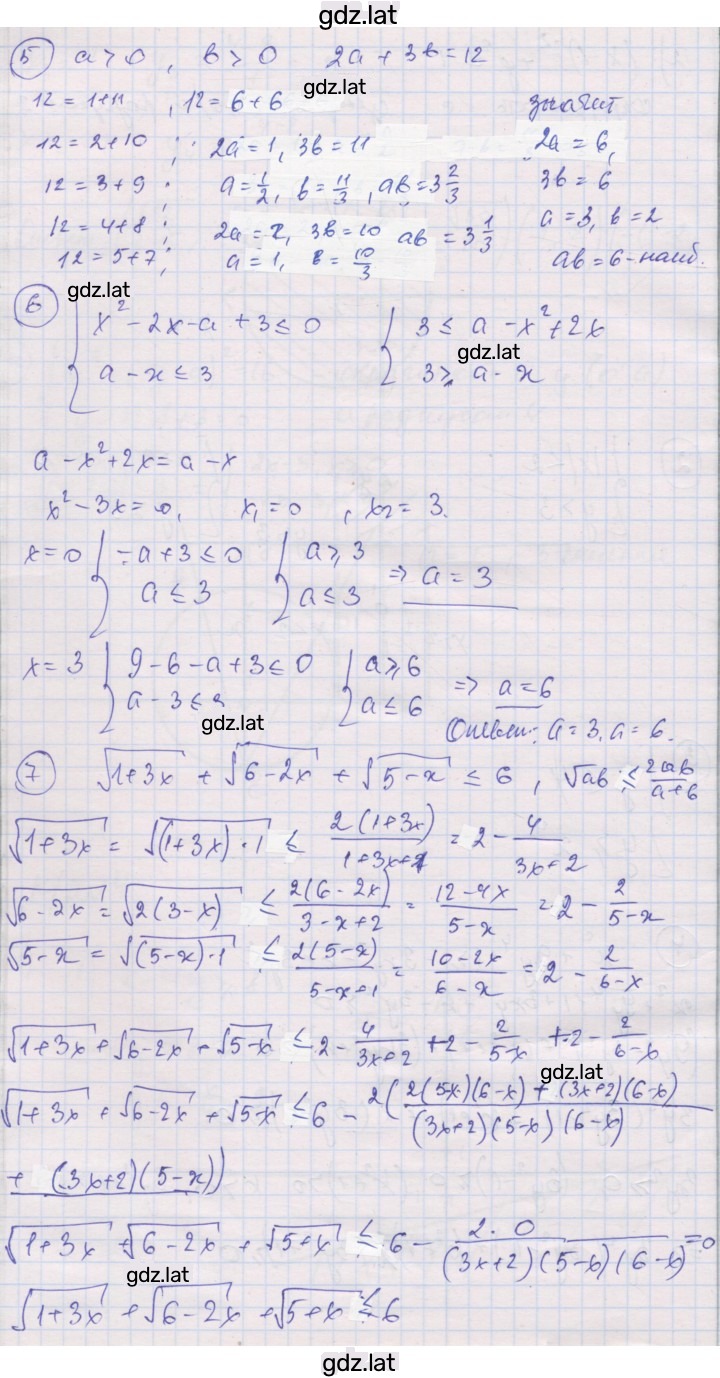 gdz.lat
5 a > 0 , в > 0 2a + 3в = 12
gdz.lat
12 = 1+11 , 12 = 6 + 6 значит
12 = 2+10 ; 2a = 1, 3в = 11 2a = 6,
12 = 3+9 ; a = 1/2, в = 11/3, aв = 3 2/3 3в = 6
12 = 4+8 ; 2a = 2, 3в = 10 aв = 3 1/3 a = 3, в = 2
12 = 5+7 ; a = 1, в = 10/3 aв = 6 - наиб.
gdz.lat
6 { x² - 2x - a + 3 ≤ 0 { 3 ≤ a - x² + 2x
gdz.lat
a - x ≤ 3 3 ≥ a - x
a - x² + 2x = a - x
x² - 3x = 0, x₁ = 0 , x₂ = 3.
x = 0 { -a + 3 ≤ 0 { a ≥ 3
a ≤ 3 a ≤ 3 => a = 3
x = 3 { 9 - 6 - a + 3 ≤ 0 { a ≥ 6
a - 3 ≤ 3 a ≤ 6 => a = 6
gdz.lat
Ответ: a = 3, a = 6.
7 √(1+3x) + √(6-2x) + √(5-x) ≤ 6 , √aв ≤ 2aв/(a+в)
√(1+3x) = √((1+3x)·1) ≤ 2(1+3x)/(1+3x+1) = 2 - 4/(3x+2)
√(6-2x) = √(2(3-x)) ≤ 2(6-2x)/(3-x+2) = (12-4x)/(5-x) = 2 - 2/(5-x)
√(5-x) = √((5-x)·1) ≤ 2(5-x)/(5-x+1) = (10-2x)/(6-x) = 2 - 2/(6-x)
√(1+3x) + √(6-2x) + √(5-x) ≤ 2 - 4/(3x+2) + 2 - 2/(5-x) + 2 - 2/(6-x)
gdz.lat
√(1+3x) + √(6-2x) + √(5-x) ≤ 6 - 2(2(5-x)(6-x) + (3x+2)(6-x)/(3x+2)(5-x)(6-x)
+ (3x+2)(5-x))
√(1+3x) + √(6-2x) + √(5+x) ≤ 6 - 2·0/((3x+2)(5-x)(6-x)) = 0
gdz.lat
√(1+3x) + √(6-2x) + √(5+x) ≤ 6
gdz.lat